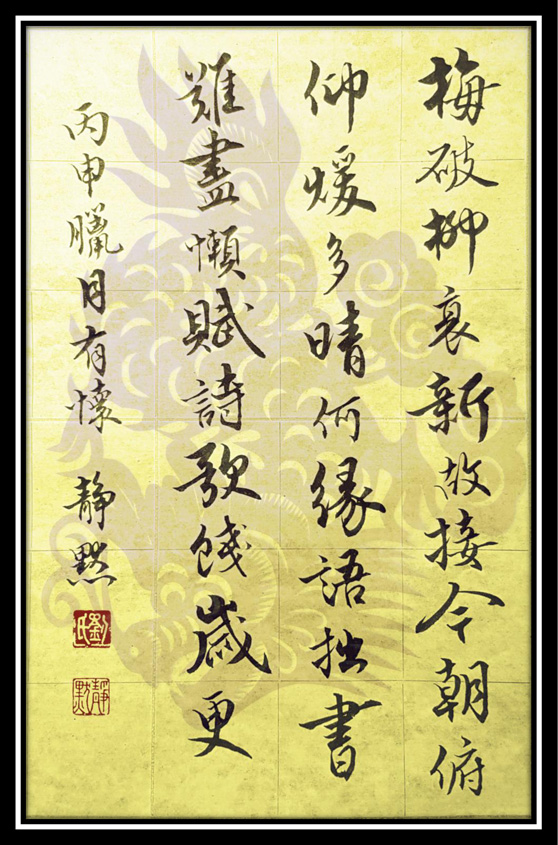 梅破柳衰新故接今朝俯
仰煖多晴何緣語拙書
難盡懶賦詩歌餞歲更
丙申臘月有懷 靜默
劉氏
靜默